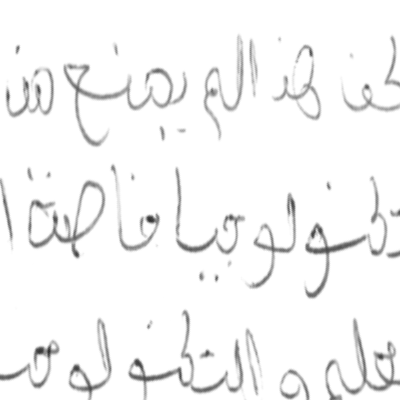 لكن هذا لم يمنع من
تكنولوجيا خاصة ا
علم و التكنولوجيـ